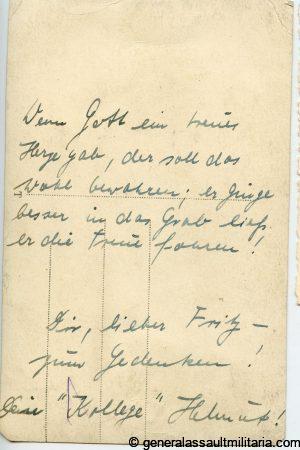 Wenn Gott ein treues
Herze gab, der soll das
wohl bewahren; er ginge
besser in das Grab ließ
er die Treue fahren!
Dir, lieber Fritz –
zum Gedenken!
Dein "Kollege" Helmut!
© generalassaultmilitaria.com